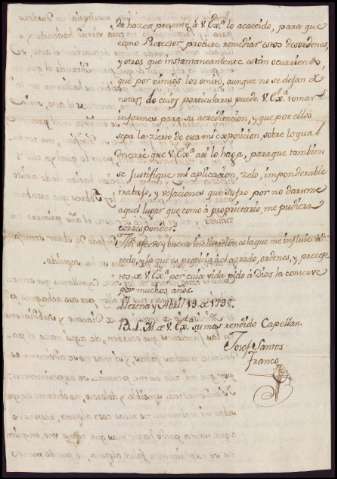 de hacer presente á V. Ex.ª lo acaecido, para que
como Protector procure remediar estos desordenes,
y otros que instantaneamente están ocurriendo
que por omiso los omito, aunque no se dejan de
notar; de cuios particulares puede V. Ex.ª tomar
informes para su acreditacion, y que por ellos
sepa lo cierto de esta mi exposicion, sobre lo qual
Oneraré que V. Ex.ª asi lo haga, para que tambien
se justifique mi aplicacion, zelo, imponderable
trabajo, y vejaciones que sufro por no darseme
aquel lugar que como á propietario, me pudiera
corresponder.
afecto, y buena inclinacion es la que me
todo, y lo que es propio á su agrado, ordenes, y precep-
tos de V. Ex.ª por cuia vida pido á Dios la conserve
por muchos años.
y Abril 19 de 1795.
B. L. M. de V. Ex.ª su mas rendido Capellan.
Josef Santos
Franco